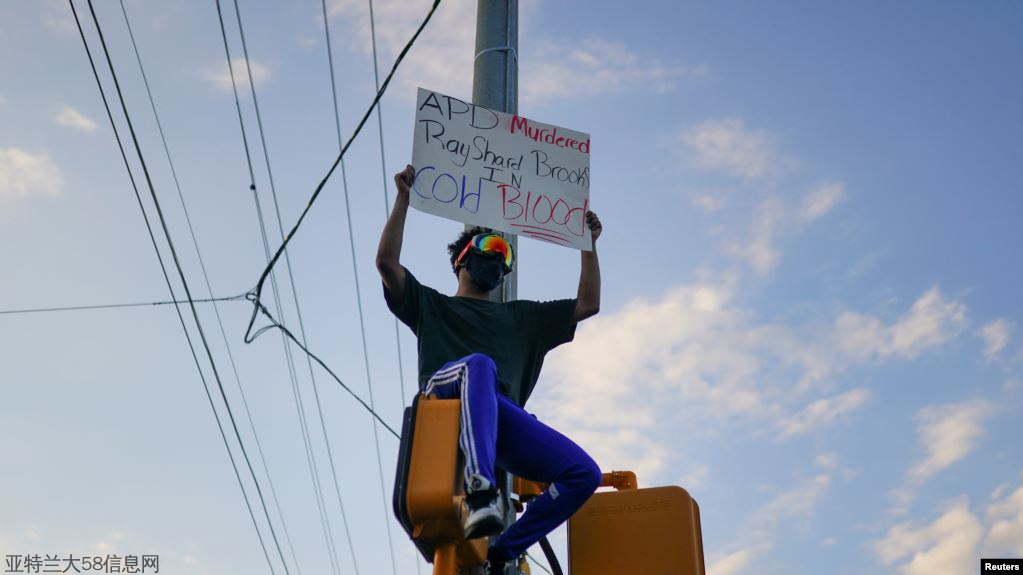 APD Murdered
RayShard Brooks
IN
COld BlOOd
亚特兰大58信息网
Reuters